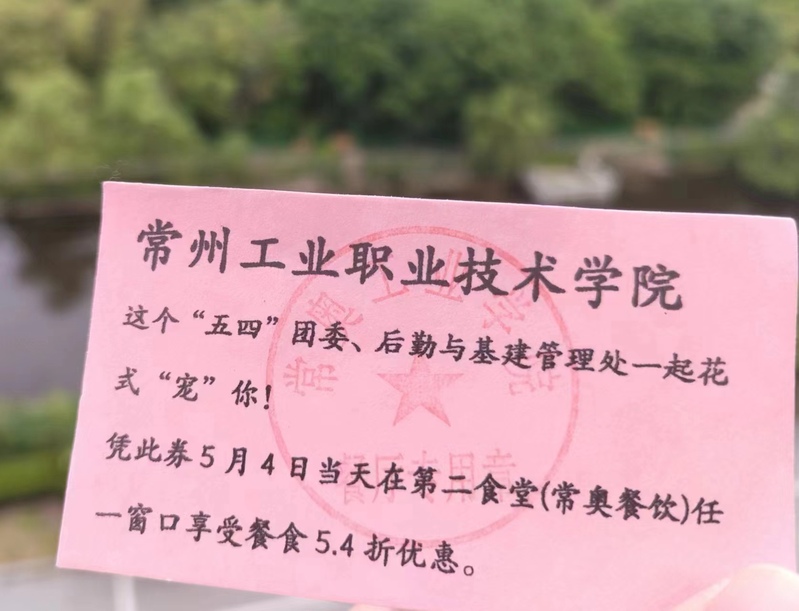 常州工业职业技术学院
这个“五四”团委、后勤与基建管理处一起花
式“宠”你！
凭此券5月4日当天在第二食堂(常奥餐饮)任
一窗口享受餐食5.4折优惠。
常奥工业学院
餐厅专用章